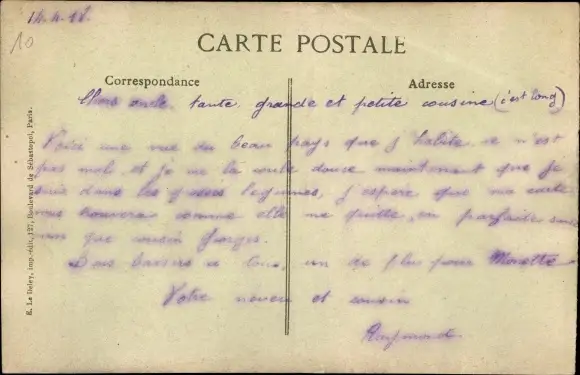 14.4.18.
10
CARTE POSTALE
Correspondance
Adresse
Chers oncle, tante, grande et petite cousine (c'est long)
Voici une vue du beau pays que j'habite, ce n'est
pas mal, et je me la coule douce maintenant que je
suis dans les grosses légumes, j'espère que ma carte
vous trouvera comme elle me quitte, en parfaite santé
que cousin Georges.
Bons baisers à tous, un de plus pour Monette
Votre neveu et cousin
Raymond
E. Le Deley, imp.-édit., 127, Boulevard de Sébastopol, Paris.